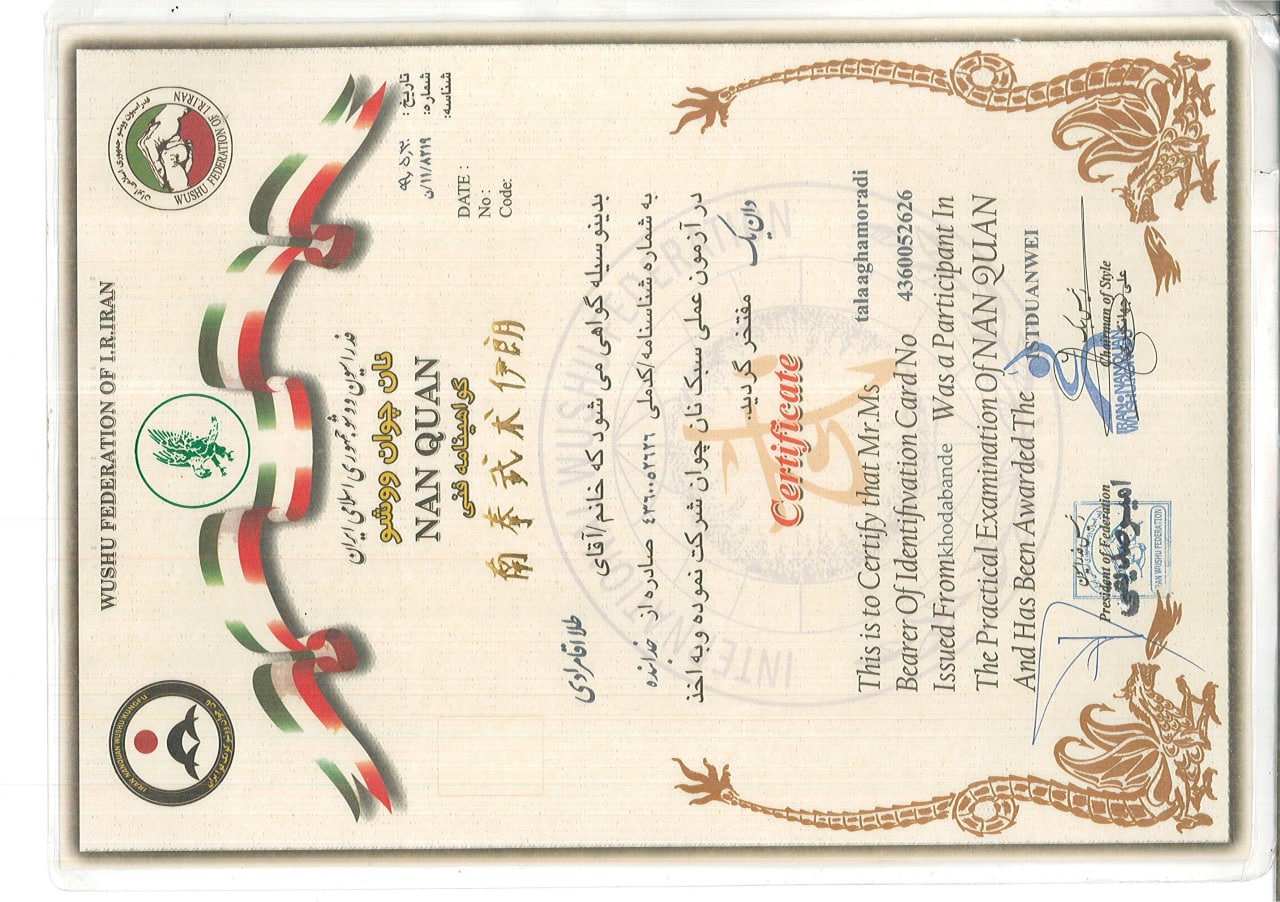 WUSHU FEDERATION OF I.R.IRAN
فدراسیون ووشو جمهوری اسلامی ایران
WUSHU FEDERATION OF I.R.IRAN
IRAN NANQUAN WUSHU KUNGFU
نان چوان ووشو کونگ فو ایران
تاریخ: ۹۹,۵,۳۰
شماره: ۱۱/۸۲۱۹/ن
شناسه:
DATE :
No :
Code:
فدراسیون ووشو جمهوری اسلامی ایران
نان چوان ووشو
NAN QUAN
گواهینامه فنی
南拳武术伊朗
بدینوسیله گواهی می شود که خانم/آقای طلا آقامرادی
به شماره شناسنامه/کدملی ۴۳۶۰۰۵۲۶۲۶ صادره از خدابنده
در آزمون عملی سبک نان چوان شرکت نموده و به اخذ
دان یک مفتخر گردید.
INTERNATIONAL WUSHU FEDERATION
Certificate
This is to Certify that Mr.Ms talaaghamoradi
Bearer Of Idenifivation Card No 4360052626
Issued Fromkhodabande Was a Participant In
The Practical Examination Of NAN QUAN
And Has Been Awarded The 1STDUANWEI
رئیس فدراسیون
President of Federation
امیر صدیقی
IRAN WUSHU FEDERATION
رئیس سبک
Chairman of Style
IRAN NANQUAN